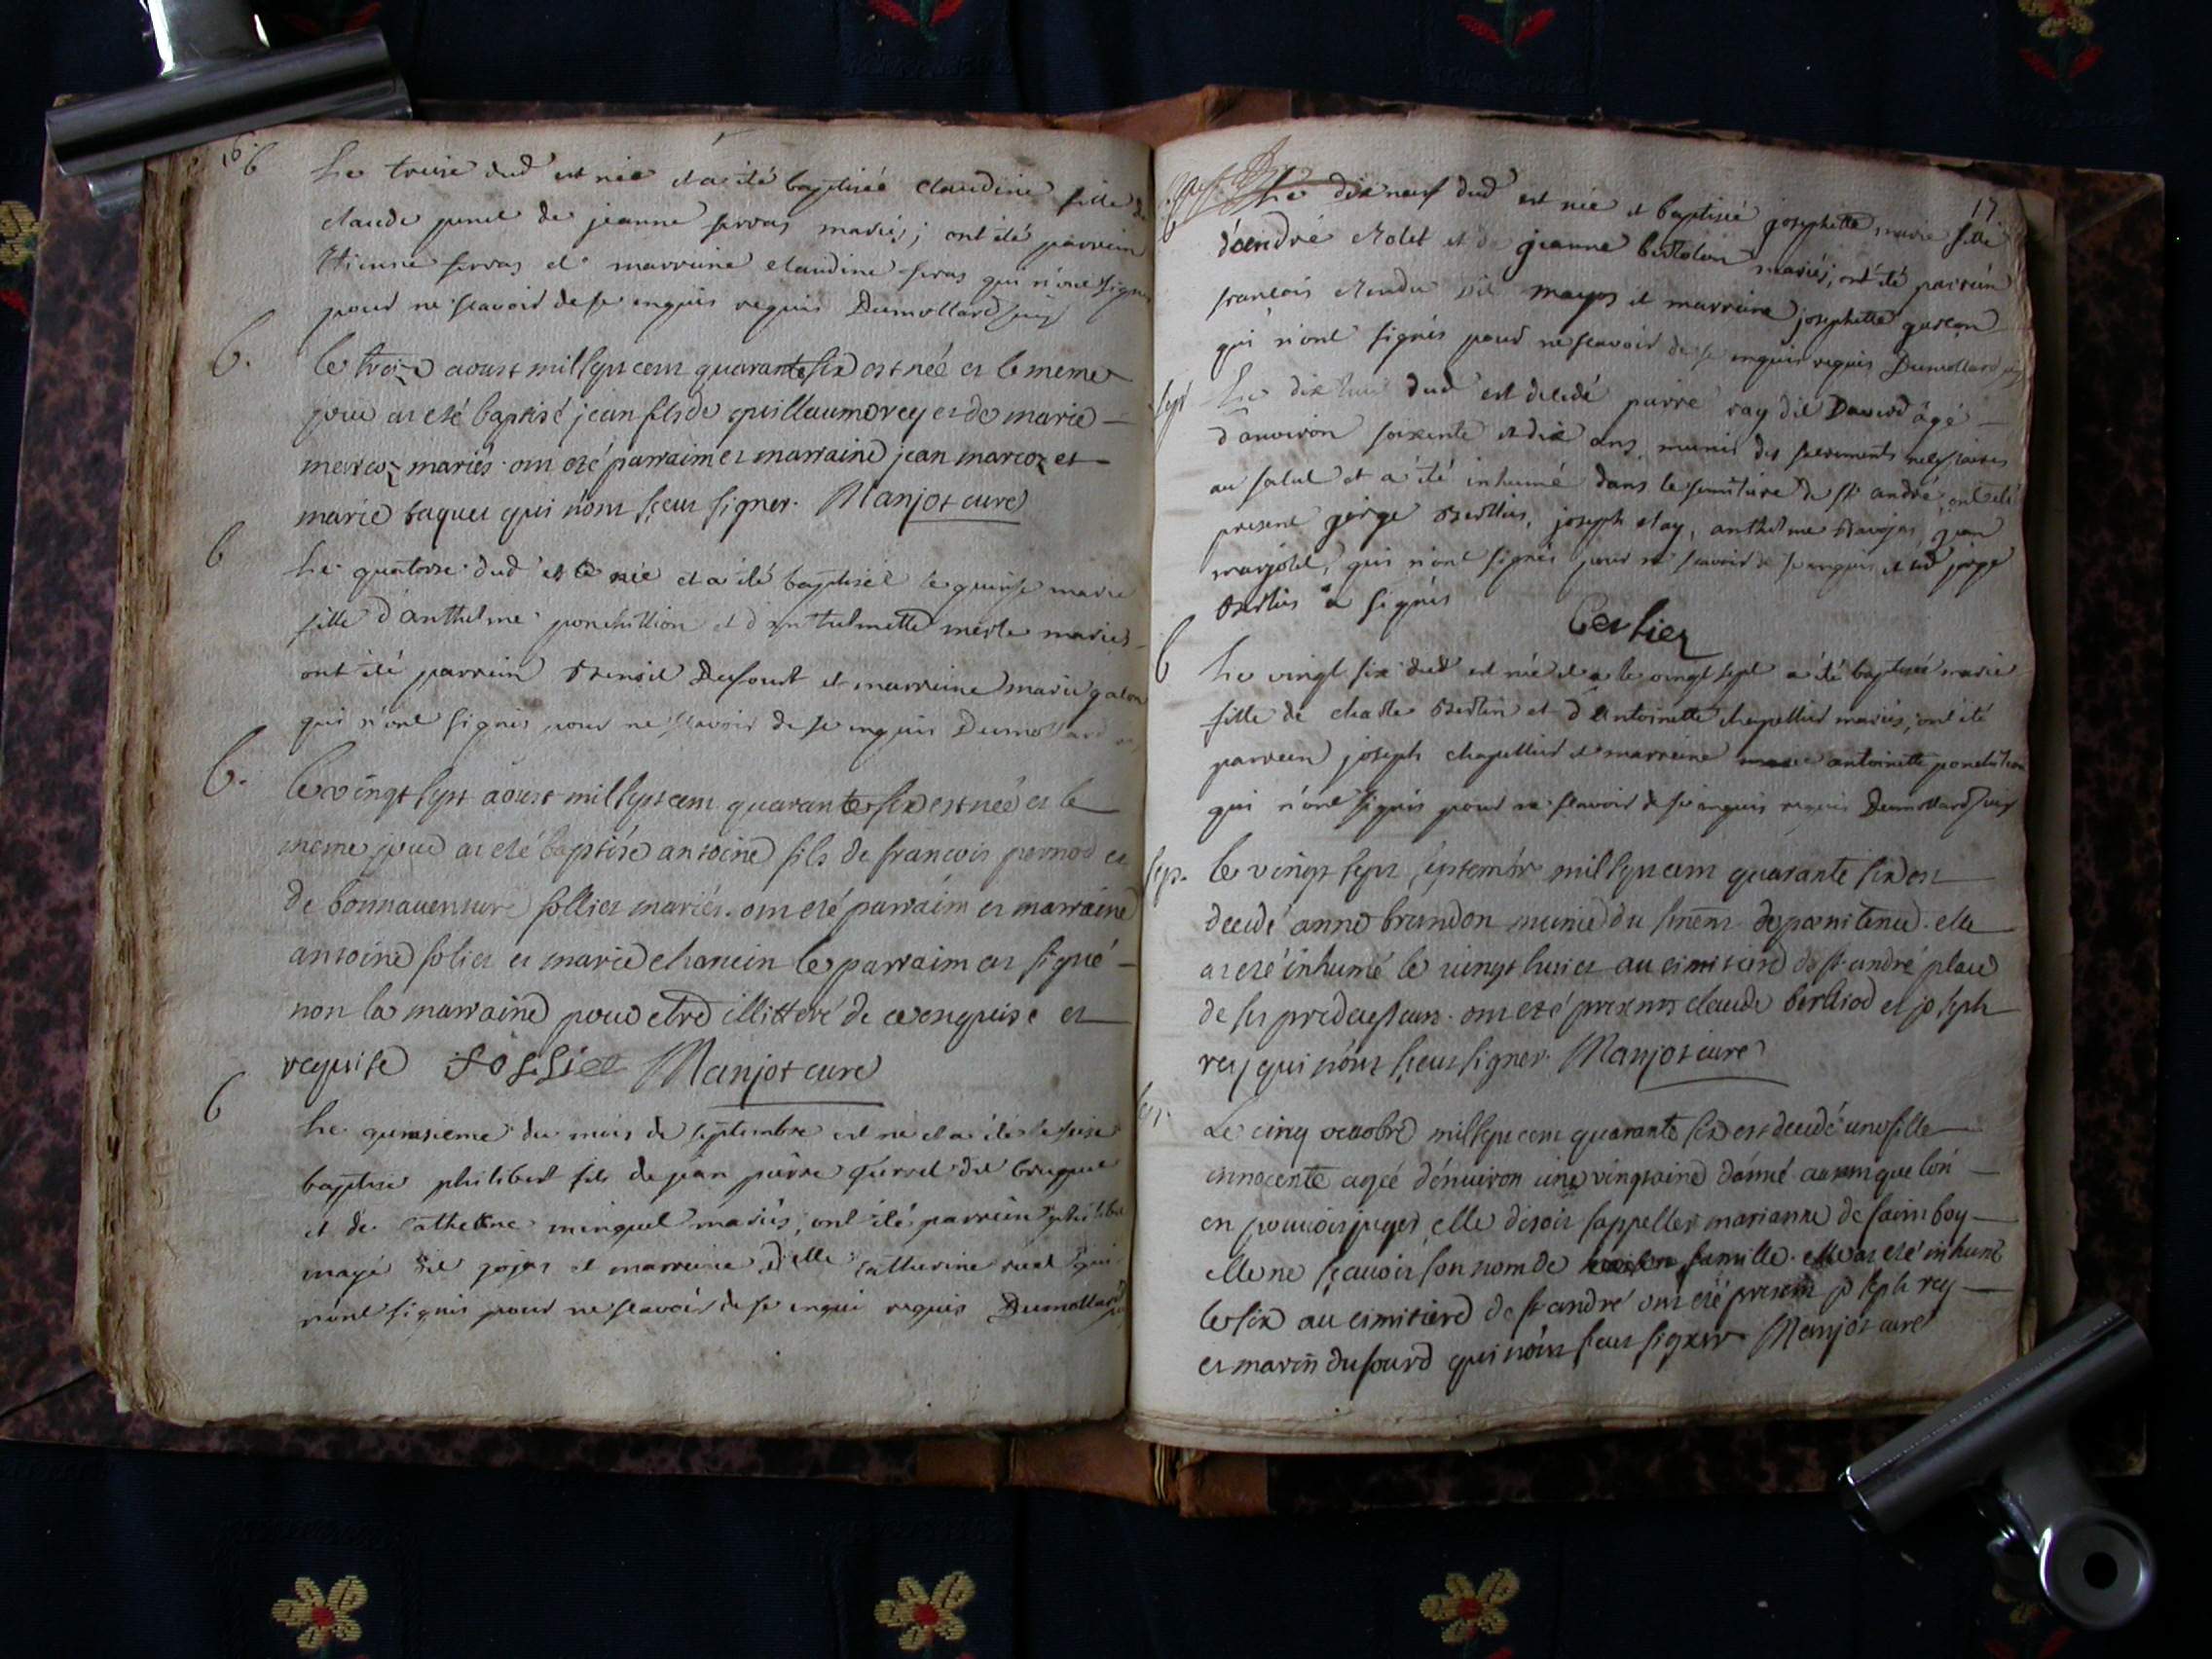 16.
b Le treise dud est née et a été baptisée claudine fille de
claude punel de jeanne servas mariés; ont été parrein
Etienne servas et marreine claudine servas qui n'ont signé
pour ne scavoir de se enquis requis Dumollard
b. le treize aoust mil sept cent quarante six est néé et le meme
jour at eté baptisé jean fils de guillaume rey et de marie
marcoz mariés. ont eté parraim et marraine jean marcoz et
marie baquet qui n'ont sçeut signer. Manjot curé
b Le quatorse dud est née et a été baptisée le quinse marie
fille d'anthelme ponchillion et d'anthelmette merle mariés
ont été parrein Benoit Dufourt et marreine marie galon
qui n'ont signés pour ne scavoir de se enquis Dumollard
b. le vingt sept aoust mil sept cent quarante six est néé et le
meme jour at eté baptisé antoine fils de francois pernod et
de bonnaventure sollier mariés. ont eté parraim et marraine
antoine solier et marie chanein le parraim at signé
non la marraine pour etre illitteré de ce enquise et
requise sollier Manjot curé
b Le quinsieme du mois de septembre est né et a été le seise
baptisé philibert fils de jean pierre
et de Cathetine minguet mariés, ont été parrein philibert
mayé dit gojas et marreine dlle catherine
n'ont signés pour ne scavoir de se enqui requis Dumollard
17
Le dix neuf dud est née et baptisée josephette marie fille
d'andré Rolet et de jeanne bertolin mariés; ont été parrein
francois dit mayos et marreine josephette garcon
qui n'ont signés pour ne scavoir de se enquis requis Dumollard
sept Le dix huit dud est décédé pierre ray dit David âgé
d'anviron soixente et dix ans, munis des sacrements nessaires
au salut et a été inhumé dans le semitiere de st andré ont été
present george Bertlies, joseph ray, anthelme jean
marjolet, qui n'ont signés pour ne scavoir de se enquis et led jorge
Bertlies a signés
Berlier
b Le vingt six dud est née et a le vingt sept a été baptisée marie
fille de charle Bertin et d'antoinette chapellier mariés, ont été
parrein joseph chapellier et marreine antoinette ponchillion
qui n'ont signés pour ne scavoir de se enquis requis Dumollard
sep. le vingt sept septembr mil sept cent quarante six est
decedé anne brandon munie du sment de pœnitence. elle
at eté inhumé le vingt huict au cimitiere de st andré place
de ses predecesseurs. ont eté presents claude berthod et joseph
rey qui n'ont sçeut signer. Manjot curé
Le cinq octobre mil sept cent quarante six est decedé une fille
innocente agéé d'enuiron une vingtaine d'année autant que l'on
en pouuoit juger, elle disoit s'appeller marianne de saint boy
elle ne sçauoit son nom de famille. elle at eté inhumé
le six au cimitiere de st andré ont eté present joseph rey
et marin dufourd qui n'ont sceut signer Manjot curé